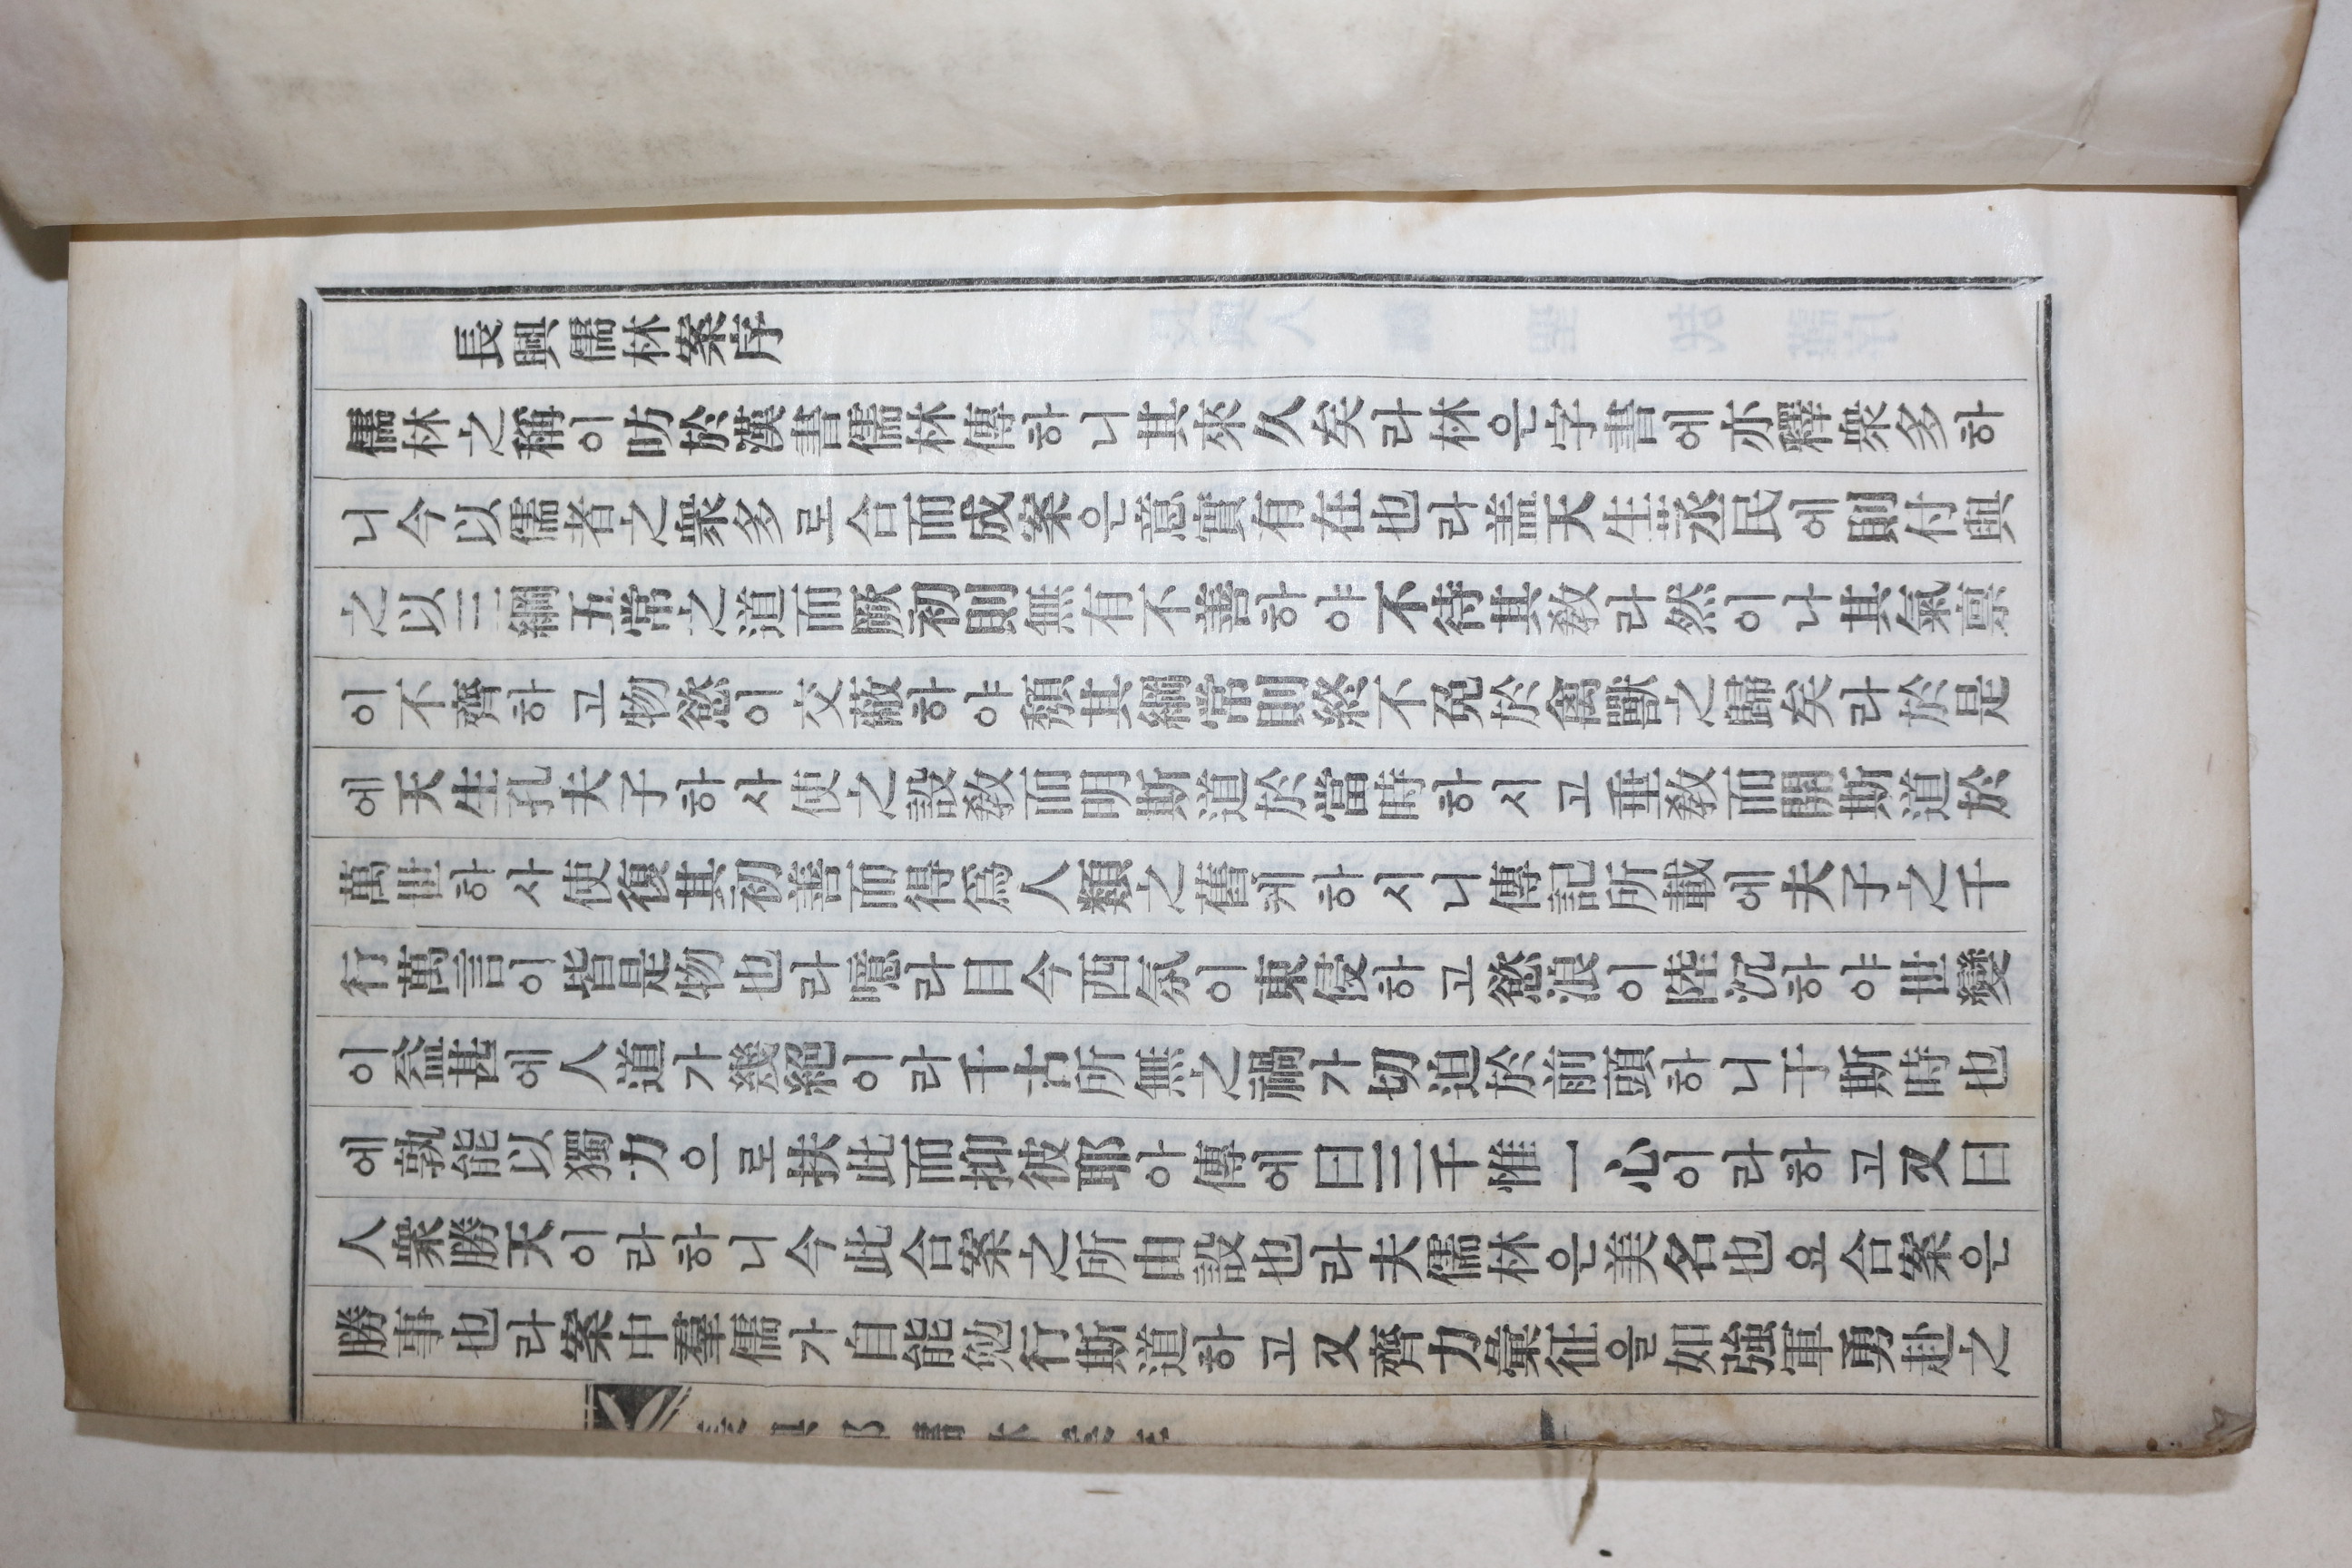 長興儒林案序
儒林之稱이昉於漢書儒林傳하니其來久矣라林은字書에亦釋衆多하
니今以儒者之衆多로合而成案은意實有在也라盖天生蒸民에則付與
之以三綱五常之道而厥初則無有不善하야不待其敎라然이나其氣禀
이不齊하고物慾이交蔽하야頹其綱常則終不免於禽獸之歸矣라於是
에天生孔夫子하사使之設敎而明斯道於當時하시고垂敎而開斯道於
萬世하사使復其初善而得爲人類之舊케하시니傳記所載에夫子之千
行萬言이皆是物也라噫라目今西氛이東侵하고慾浪이陸沉하야世變
이益甚에人道가幾絕이라千古所無之禍가切迫於前頭하니于斯時也
에孰能以獨力으로扶此而抑彼耶아傳에曰三千惟一心이라하고又曰
人衆勝天이라하니今此合案之所由設也라夫儒林은美名也요合案은
勝事也라案中羣儒가自能勉行斯道하고又齊力彙征을如強軍勇赴之